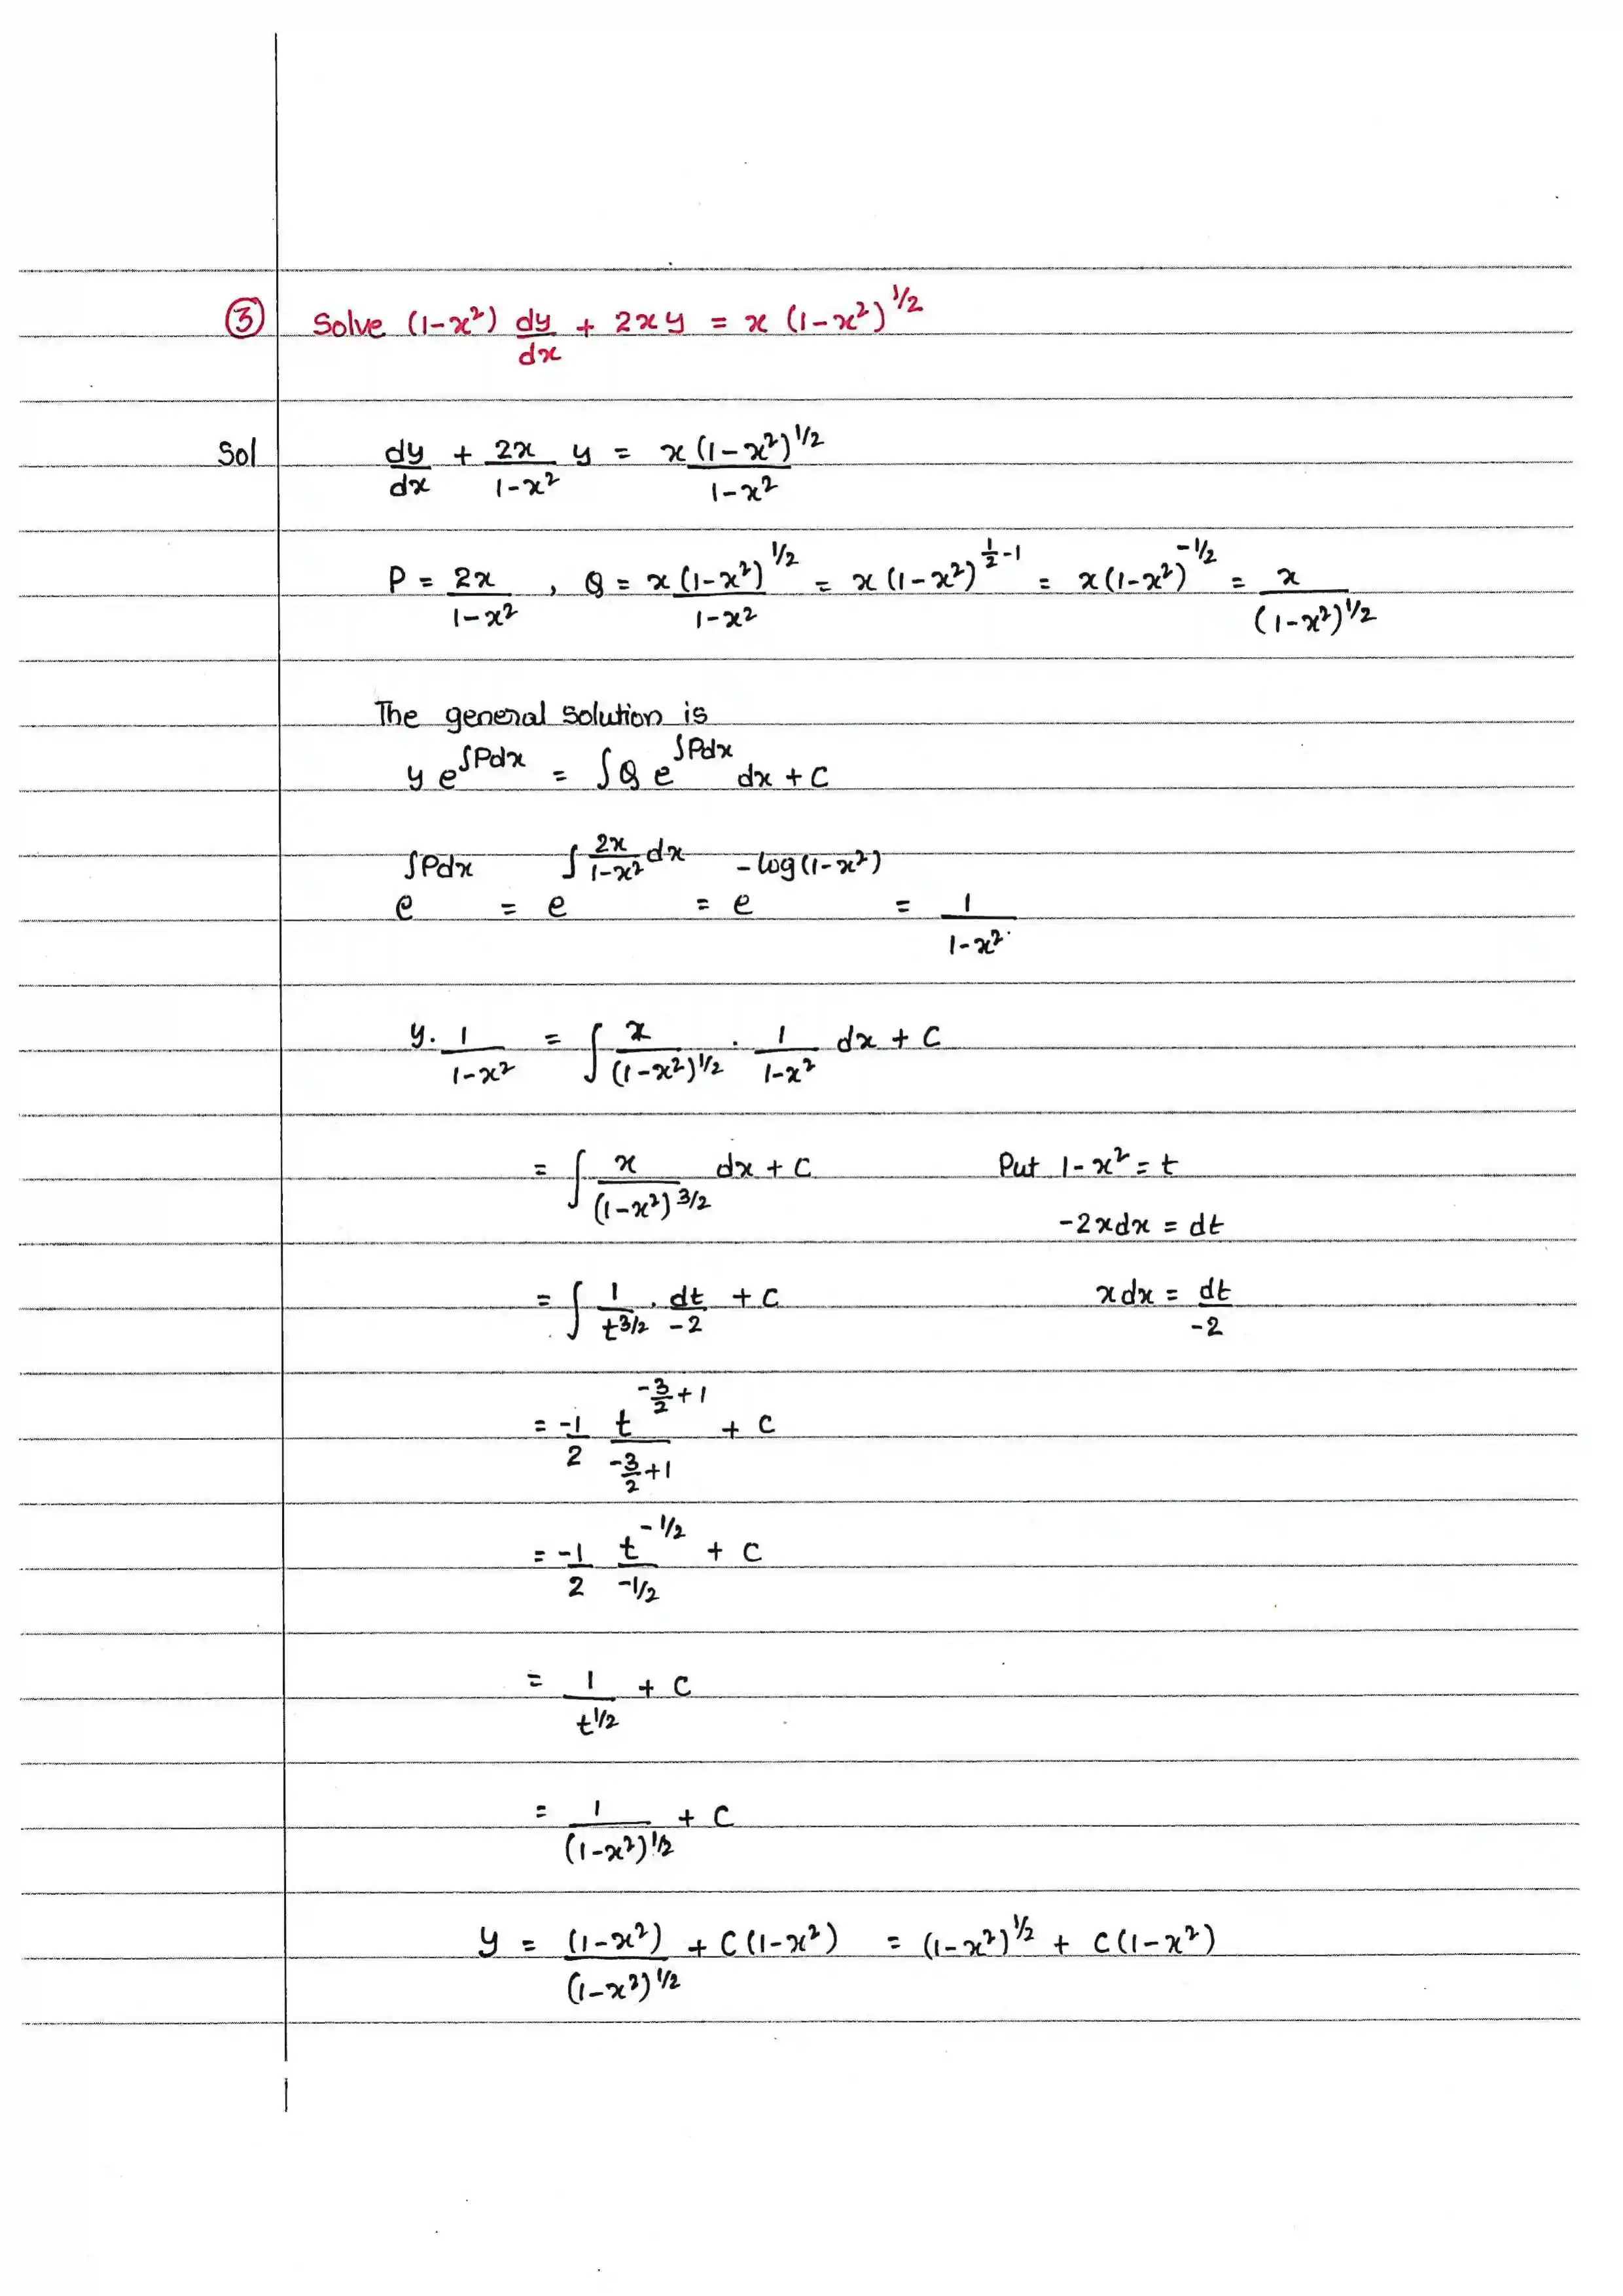 ③ Solve (1-x²) dy/dx + 2xy = x (1-x²)^1/2
Sol dy/dx + 2x/(1-x²) y = x(1-x²)^1/2 / (1-x²)
P = 2x/(1-x²) , Q = x(1-x²)^1/2 / (1-x²) = x(1-x²)^(1/2 -1) = x(1-x²)^-1/2 = x/(1-x²)^1/2
The general solution is
y e^∫Pdx = ∫Q e^∫Pdx dx + C
e^∫Pdx = e^∫ 2x/(1-x²) dx = e^-log(1-x²) = 1/(1-x²)
y. 1/(1-x²) = ∫ x/(1-x²)^1/2 . 1/(1-x²) dx + C
= ∫ x/(1-x²)^3/2 dx + C Put 1-x² = t
-2xdx = dt
= ∫ 1/t^3/2 . dt/-2 + C xdx = dt/-2
= -1/2 t^(-3/2 +1) / (-3/2 +1) + C
= -1/2 t^-1/2 / (-1/2) + C
= 1/t^1/2 + C
= 1/(1-x²)^1/2 + C
y = (1-x²)/(1-x²)^1/2 + C(1-x²) = (1-x²)^1/2 + C(1-x²)